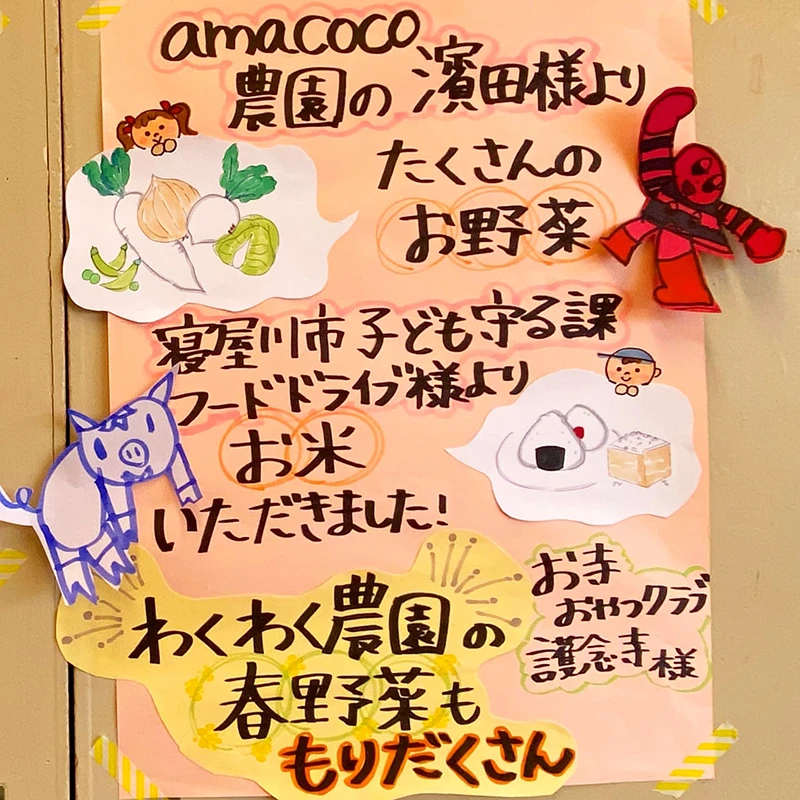 amacoco
農園の濱田様より
たくさんの
お野菜
寝屋川市子ども守る課
フードドライブ様より
お米
いただきました!
お寺
おやつクラブ
護念寺様
わくわく農園の
春野菜も
もりだくさん